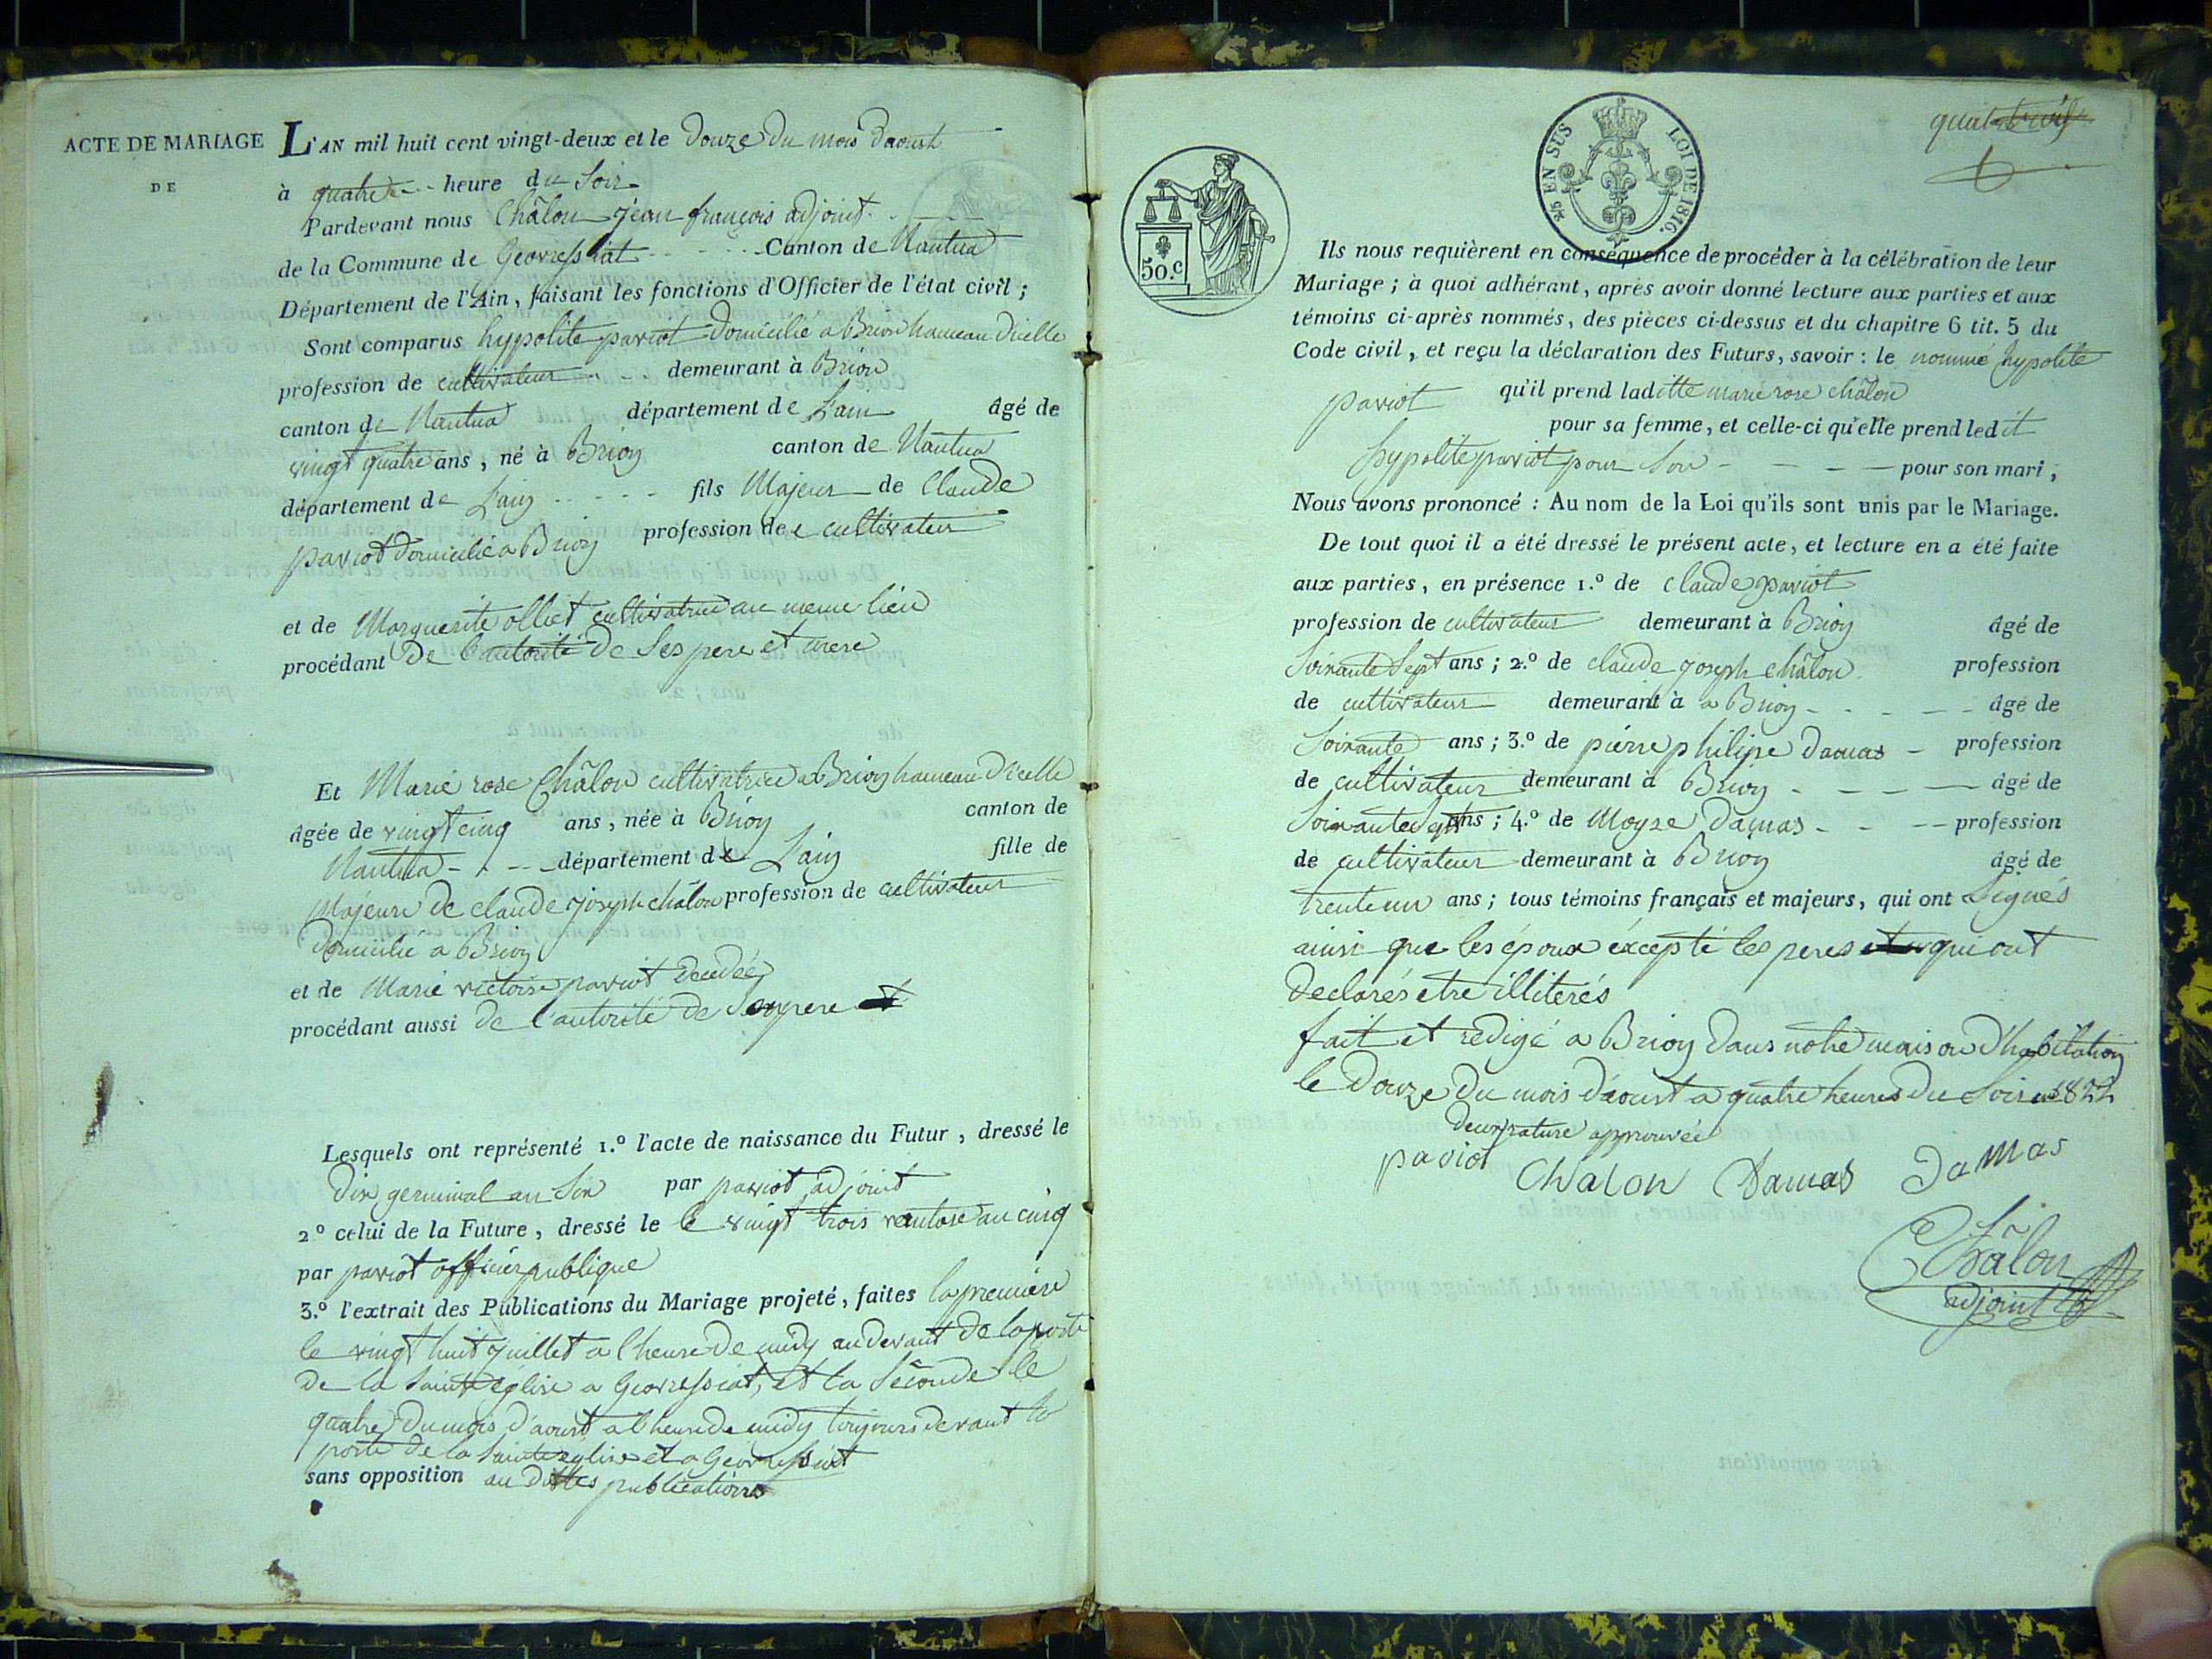 ACTE DE MARIAGE
DE
L'AN mil huit cent vingt-deux et le Douze Du mois Daoust
à quatre heure du Soir
Pardevant nous Châlon jean françois adjoint
de la Commune de Geovressiat Canton de Nantua
Département de l'Ain, faisant les fonctions d'Officier de l'état civil;
Sont comparus hypolite paviot Domicilié a Brion hameau Dicelle
profession de cultivateur demeurant à Brion
canton de Nantua département de L'ain âgé de
vingt quatre ans, né à Brion canton de Nantua
département de L'ain fils Majeur de Claude
paviot Domicilié a Brion profession de cultivateur
et de Marguerite olliet cultivatrice au meme lieu
procédant De l'autorité De Ses pere et mere
Et Marie rose Châlon cultivatrice a Brion hameau D'icelle
âgée de vingt cinq ans, née à Brion canton de
Nantua département de L'ain fille de
Majeure de claude joseph châlon profession de cultivateur
Domicilié a Brion
et de Marie victoire paviot Decedée
procédant aussi de l'autorité de Son pere
Lesquels ont représenté 1.º l'acte de naissance du Futur, dressé le
Dix germinal an Six par paviot adjoint
2º celui de la Future, dressé le le vingt trois ventose an cinq
par paviot officier publique
3.º l'extrait des Publications du Mariage projeté, faites la premiere
le vingt huit juillet a l'heure De midy au devant de la porte
De la Sainte église a Geovressiat, et la Seconde le
quatre Du mois d'aoust a l'heure de midy toujours devant la
porte de la Sainte eglise a Geovressiat
sans opposition au Dittes publications
quatre
50.C
25 EN SUS LOI DE 1816.
Ils nous requièrent en conséquence de procéder à la célébration de leur
Mariage; à quoi adhérant, après avoir donné lecture aux parties et aux
témoins ci-après nommés, des pièces ci-dessus et du chapitre 6 tit. 5 du
Code civil, et reçu la déclaration des Futurs, savoir: le nommé hypolite
paviot qu'il prend laditte marie rose châlon
pour sa femme, et celle-ci qu'elle prend ledit
hypolite paviot pour Son pour son mari;
Nous avons prononcé: Au nom de la Loi qu'ils sont unis par le Mariage.
De tout quoi il a été dressé le présent acte, et lecture en a été faite
aux parties, en présence 1.º de claude paviot
profession de cultivateur demeurant à Brion âgé de
Soixante Sept ans; 2.º de claude joseph châlon profession
de cultivateur demeurant à a Brion âgé de
Soixante ans; 3.º de pierre philipe Damas profession
de cultivateur demeurant à Brion âgé de
Soixante Sept ans; 4.º de Moyse Damas profession
de cultivateur demeurant à Brion âgé de
trente un ans; tous témoins français et majeurs, qui ont Signés
ainsi que les époux éxcepté les peres qui ont
Declarés etre illiterés
fait et redigé a Brion Dans notre maison D'habitation
le Douze Du mois D'aoust a quatre heures Du Soir 1822
Deux rature approuvée
paviot Chalon Damas Damas
Châlon
adjoint